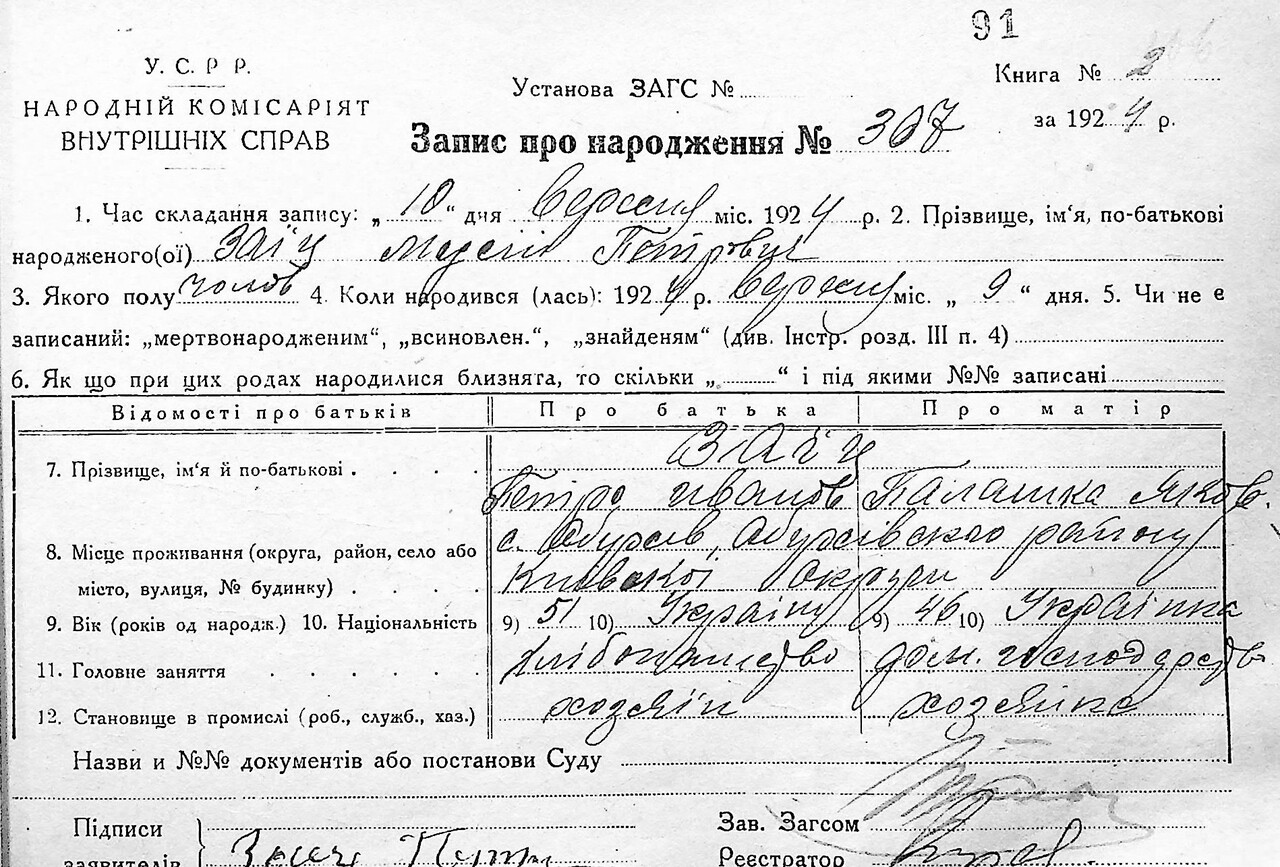 91
У. С. Р Р.
НАРОДНІЙ КОМІСАРІЯТ
ВНУТРІШНІХ СПРАВ
Установа ЗАГС №
Книга № 2
за 1924 р.
Запис про народження № 307
1. Час складання запису: „ 10 “ дня Вересня міс. 1924 р. 2. Прізвище, ім'я, по-батькові
народженого(ої) Заїц Мусій Петрович
3. Якого полу чолов 4. Коли народився (лась): 1924 р. Вересня міс. „ 9 “ дня. 5. Чи не є
записаний: „мертвонародженим“, „всиновлен.“, „знайденям“ (див. Інстр. розд. III п. 4)
6. Як що при цих родах народилися близнята, то скільки „ “ і під якими №№ записані
Відомості про батьків Про батька Про матір
7. Прізвище, ім'я й по-батькові . . . . Заїц
Петро Иванов Палашка Яков.
8. Місце проживання (округа, район, село або с. Обухів, Обухівского району
місто, вулиця, № будинку) . . . . Київскої Округи
9. Вік (років од народж.) 10. Національність 9) 51 10) Українц 9) 46 10) Українка
11. Головне заняття . . . . . . хлібопашество дом. господарство
12. Становище в промислі (роб., служб., хаз.) хозяїн хозяїнка
Назви и №№ документів або постанови Суду
Підписи
заявителів Заиц Петро
Зав. Загсом
Реєстратор